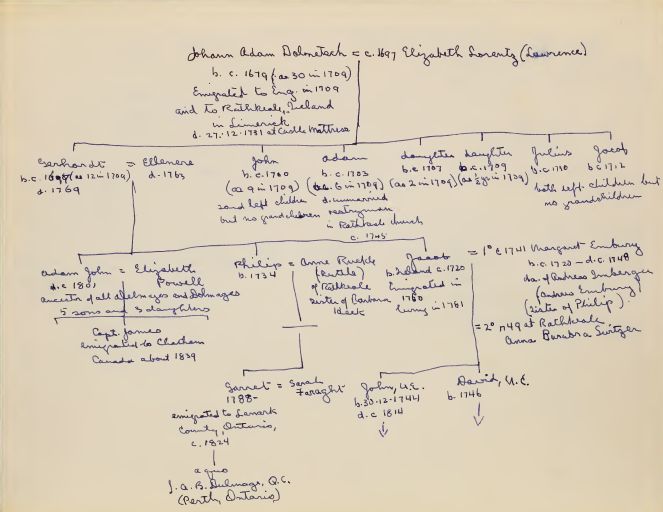 Johann Adam Dolmetsch = c. 1697 Elizabeth Lorentz (Lawrence)
b. c. 1679 (as 30 in 1709)
Emigrated to Eng. in 1709
and to Rathkeale, Ireland
in Limerick
d. 27.12.1781 at Castle Mattress
Gerhardt = Ellenere
b.c. 1697 (as 12 in 1709) d. 1763
d. 1769
John
b.c. 1700
(as 9 in 1709)
and left children
but no grandchildren
Adam
b.c. 1703
(as 6 in 1709)
d. unmarried
vestryman
in Rathkeale church
c. 1745
daughter
b.c. 1707
(as 2 in 1709)
daughter
b.c. 1709
Julius
b.c. 1710
Jacob
b.c 1712
both left children but
no grandchildren
Adam John = Elizabeth
d.c 1801 Powell
ancestor of all Delmages and Dolmages
5 sons and 3 daughters
Capt. James
emigrated to Chatham
Canada about 1839
Philip = Anne Ruckle
b. 1734
of Rathkeale
sister of Barbara
Heck
Jacob
b. Ireland c. 1720
Emigrated in
1760
living in 1781
= 1° c 1741 Margaret Embury
b.c. 1720 – d.c. 1748
da. of Andreas Imberger
(Andrew Embury)
(sister of Philip)
= 2° 1749 at Rathkeale
Anna Barabra Switzer
Garret = Sarah
1788- Faraght
emigrated to Lanark
County, Ontario,
c. 1824
a quo
J.A.B. Dulmage, Q.C.
(Perth, Ontario)
John, U.E.
b. 30.12.1744
d. c 1814
David, U.E.
b. 1746